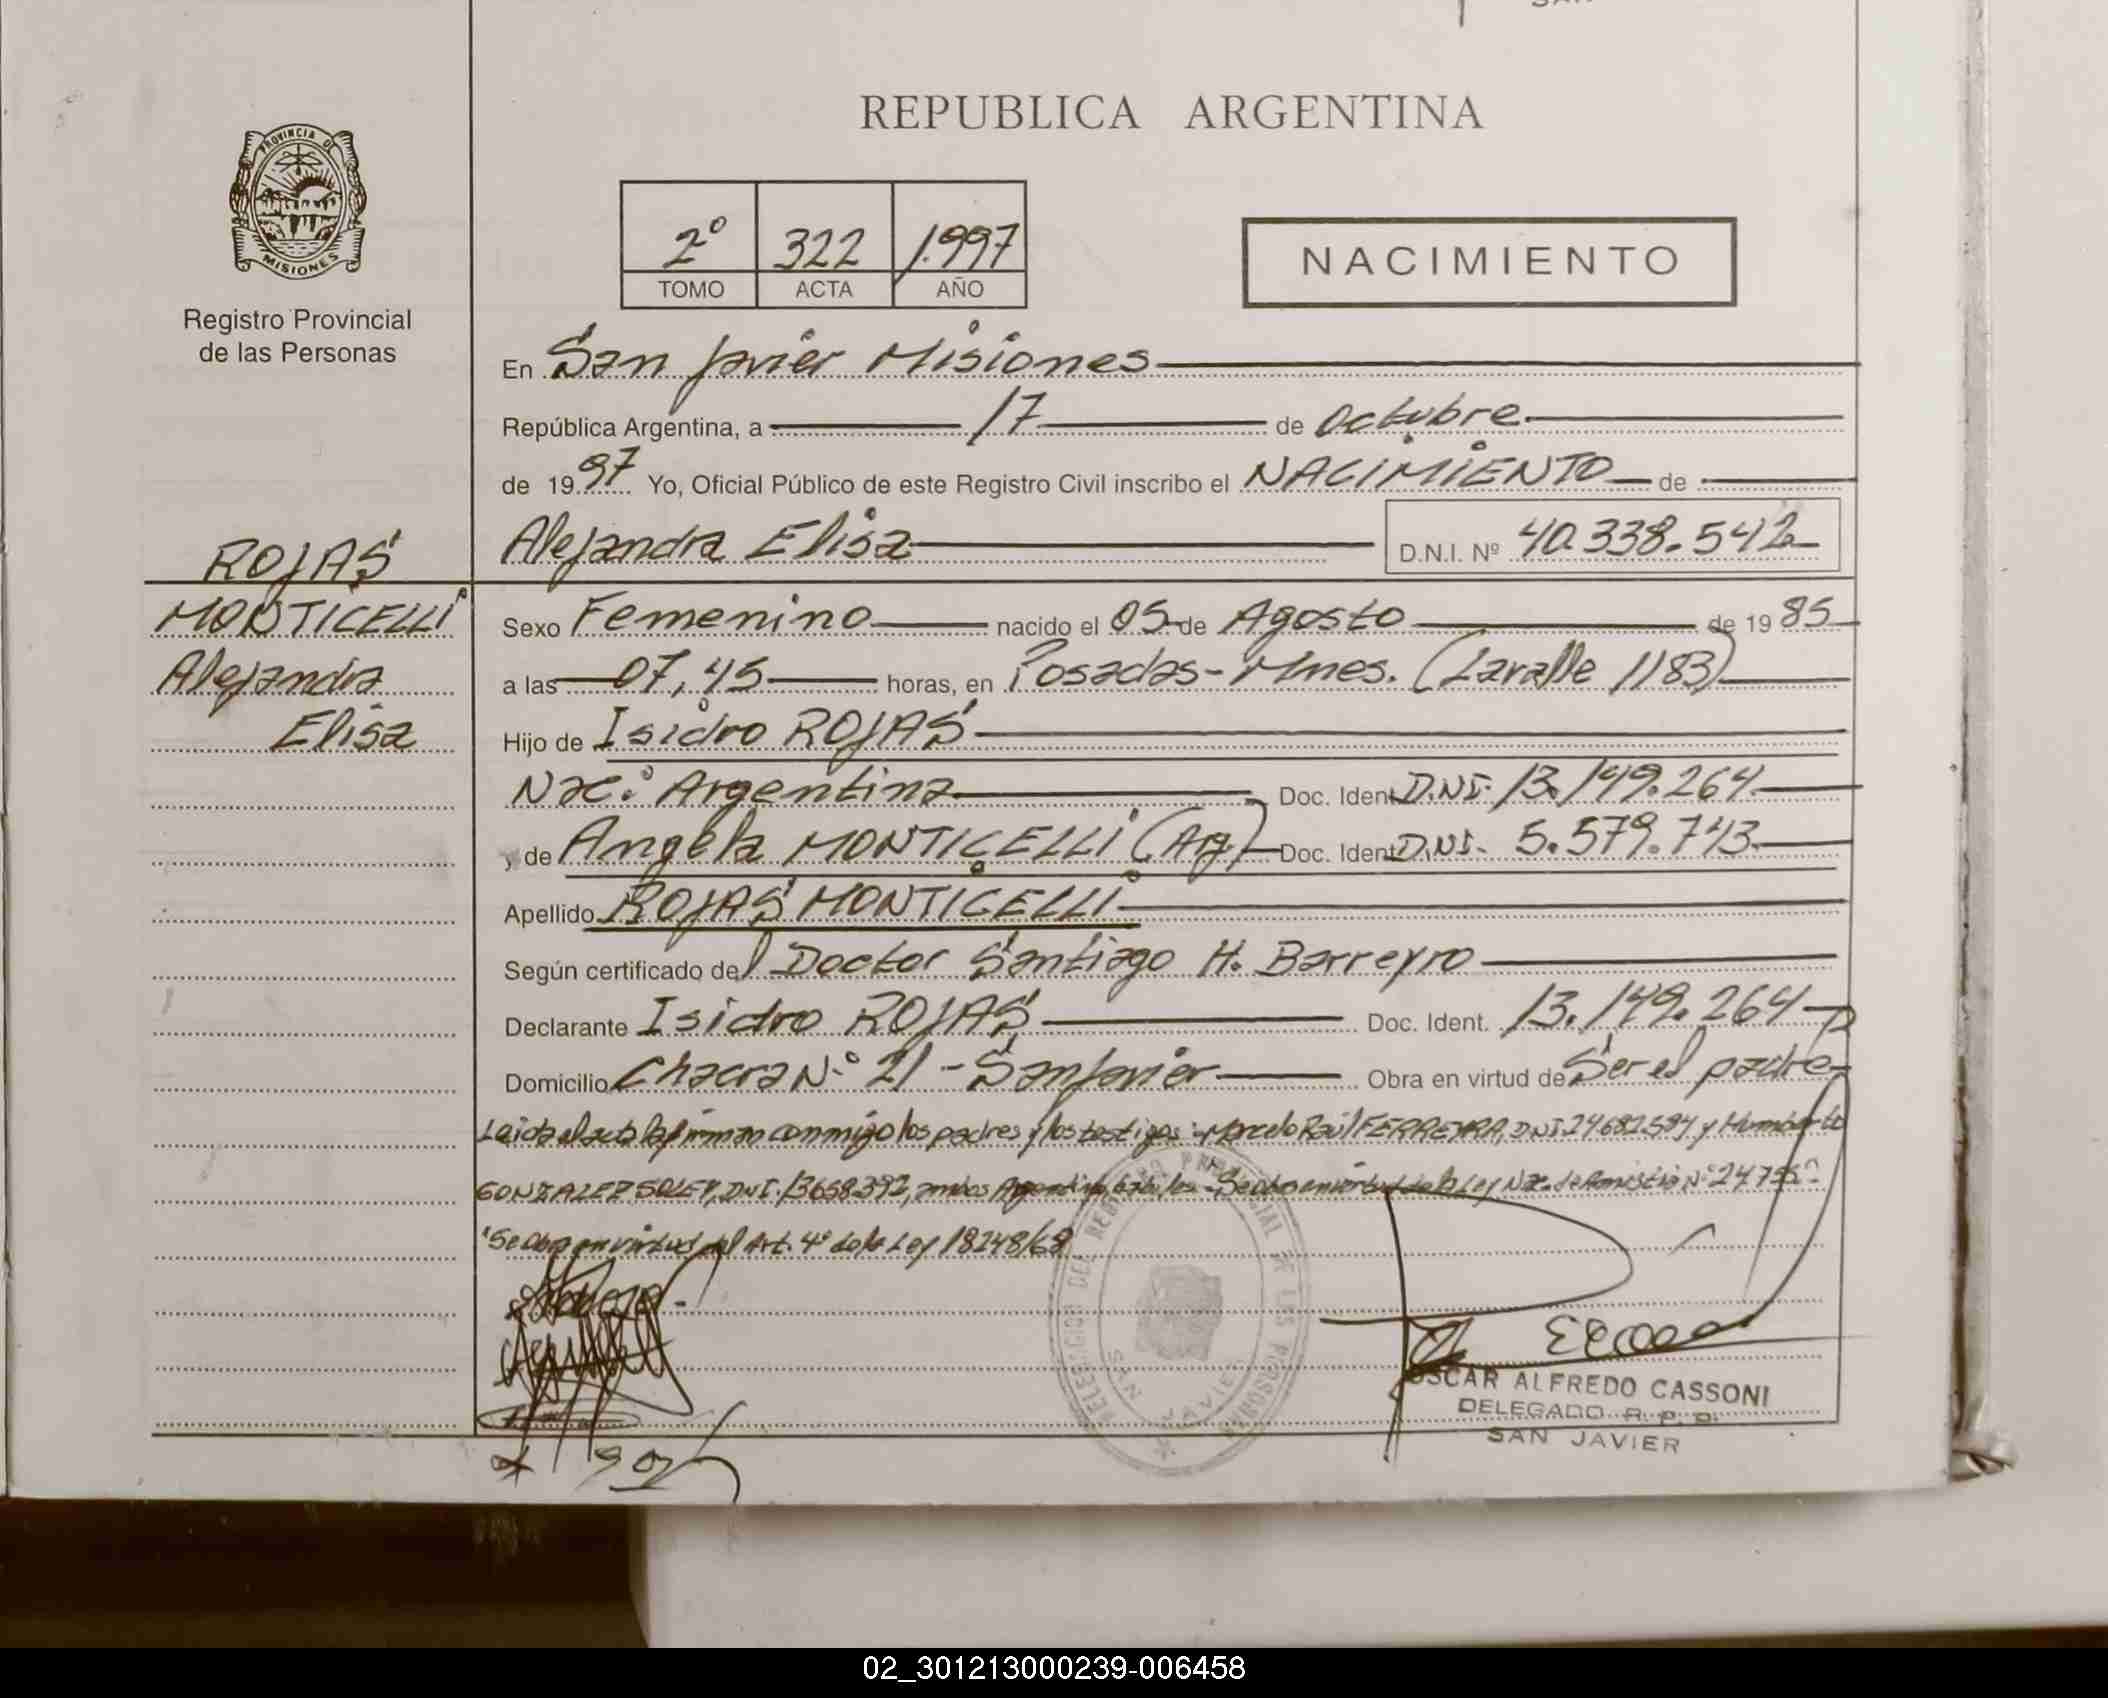 REPUBLICA ARGENTINA
PROVINCIA DE
MISIONES
Registro Provincial
de las Personas
2º 322 1.997
TOMO ACTA AÑO
NACIMIENTO
En San Javier Misiones
República Argentina, a 17 de Octubre
de 1997 Yo, Oficial Público de este Registro Civil inscribo el NACIMIENTO de
Alejandra Elisa D.N.I. Nº 40.338.542
ROJAS
MONTICELLI
Alejandra
Elisa
Sexo Femenino nacido el 05 de Agosto de 1985
a las 07,45 horas, en Posadas-Mnes. (Lavalle 1183)
Hijo de Isidro ROJAS
Nac: Argentina Doc. Ident. D.N.I. 13.149.264
y de Angela MONTICELLI (Arg) Doc. Ident. D.N.I. 5.579.743
Apellido ROJAS MONTICELLI
Según certificado del Doctor Santiago H. Barreyro
Declarante Isidro ROJAS Doc. Ident. 13.149.264
Domicilio Chacra Nº 21 - San Javier Obra en virtud de Ser el padre
Leida el acta la firman conmigo los padres y los testigos: Marcelo Raúl FERREYRA, DNI 24682584 y Humberto
GONZALEZ SOLEY, DNI. 13658392, ambos Argentinos, hábiles - Se obra en virtud de la Ley Nac. de Amnistía Nº
"Se obra en virtud del Art. 4º de la Ley 18248/69
DELEGACION DEL REGISTRO PROVINCIAL DE LAS PERSONAS
SAN JAVIER
OSCAR ALFREDO CASSONI
DELEGADO R. P. P.
SAN JAVIER
02_301213000239-006458